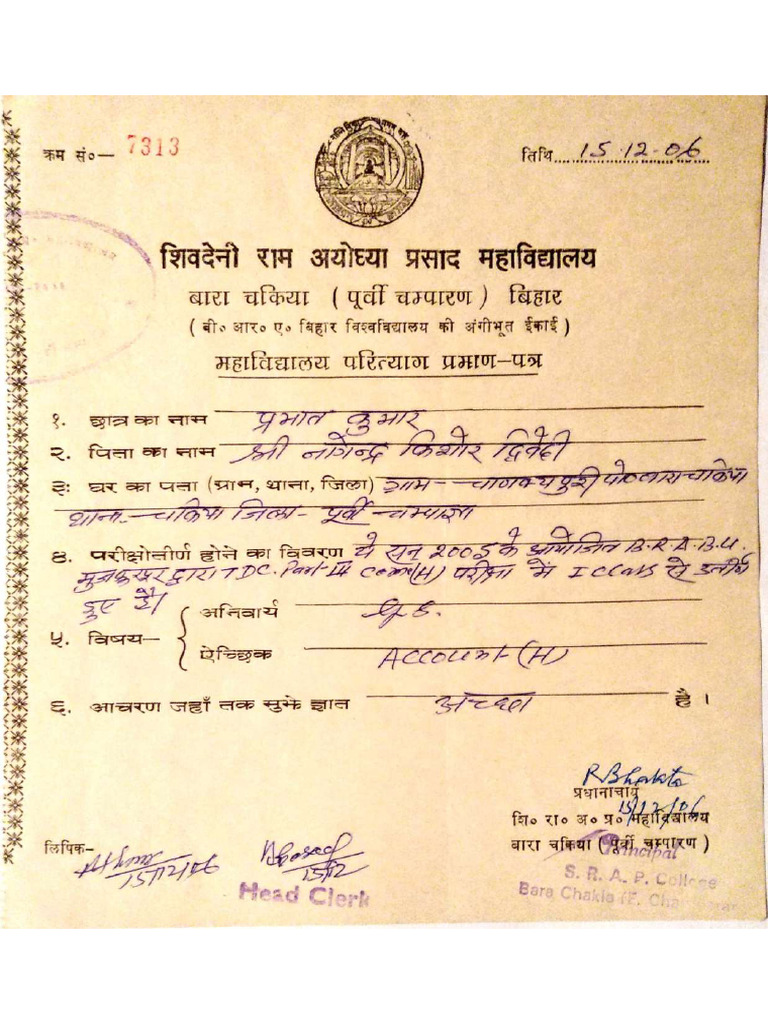 क्रम सं०— 7313
तिथि 15.12.06
शिवदेनी राम अयोध्या प्रसाद महाविद्यालय
बारा चकिया ( पूर्वी चम्पारण ) बिहार
( बी० आर० ए० बिहार विश्वविद्यालय की अंगीभूत ईकाई )
महाविद्यालय परित्याग प्रमाण-पत्र
१. छात्र का नाम प्रभात कुमार
२. पिता का नाम श्री नागेन्द्र किशोर द्विवेदी
३. घर का पता (ग्राम, थाना, जिला) ग्राम-चाणक्यपुरी पो० बारा चकिया
थाना-चकिया जिला- पूर्वी-चम्पारण
४. परीक्षोतीर्ण होने का विवरण ये सन् 2005 के आयोजित B.R.A.B.U.
द्वारा TDC. Part III Com(H) परीक्षा में I Class से उत्तीर्ण
हुए है।
५. विषय— अनिवार्य G.S.
ऐच्छिक Account-(H)
६. आचरण जहाँ तक सुझे ज्ञात अच्छा है ।
RBhakta
प्रधानाचार्य
15/12/06
शि० रा० अ० प्र० महाविद्यालय
बारा चकिया ( पूर्वी चम्पारण )
Principal
S. R. A. P. College
Bara Chakia (E. Champaran
लिपिक-
15/12/06
15/12
Head Clerk